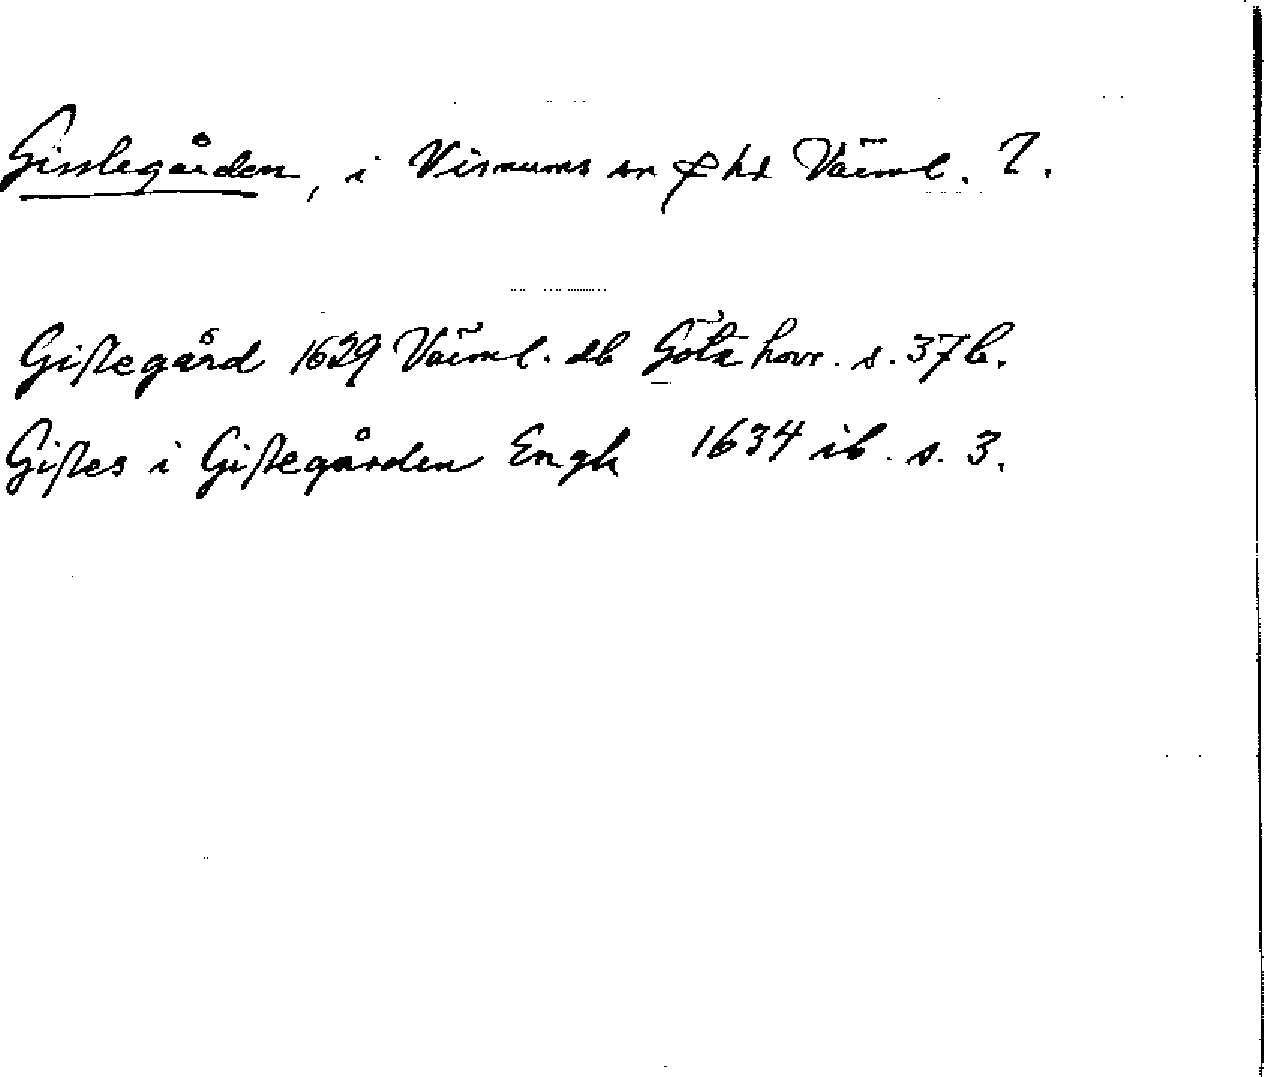 Gisslegården, i Visnums sn & hd Värml. ?.
Gislegård 1629 Värml. db Göta hovr. s. 37b.
Gisles i Gislegården Engh 1634 ib. s. 3.